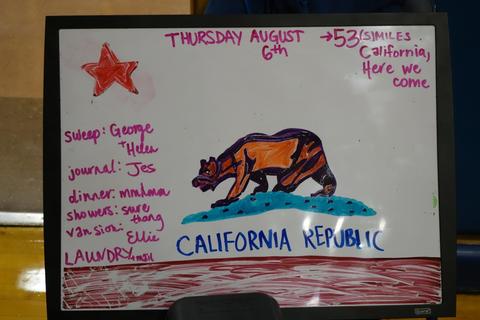 THURSDAY AUGUST
6th
→53 SMILES
California,
Here we
come
sweep: George
+ Helen
journal: Jes
dinner: mmhmm
showers: sure
thang
van sion: Ellie
LAUNDRY
CALIFORNIA REPUBLIC